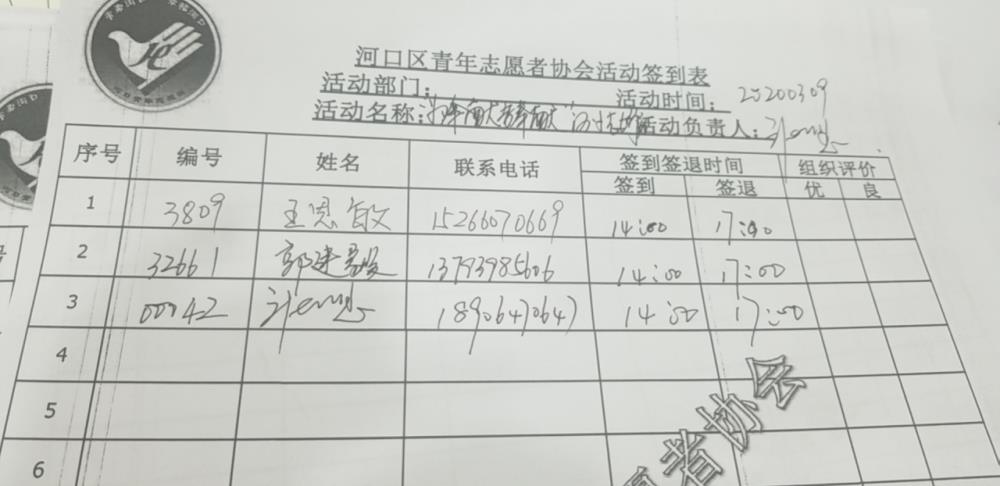 河口区青年志愿者协会活动签到表
活动部门： 活动时间：20200309
活动名称： 活动负责人：
序号 编号 姓名 联系电话 签到签退时间 组织评价
签到 签退 优 良
1 3809 王恩敏 15266070669 14:00 17:00
2 32661 郭建 13793985606 14:00 17:00
3 00042 18906470647 14:00 17:00
4
5
6
者协会